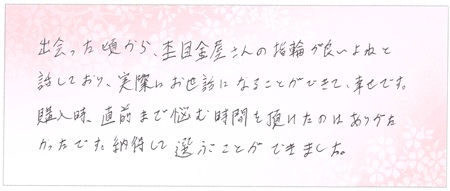 出会った頃から、杢目金屋さんの指輪が良いよねと
話しており、実際にお世話になることができて、幸せです。
購入時、直前まで悩む時間を頂けたのはありがた
かったです。納得して選ぶことができました。